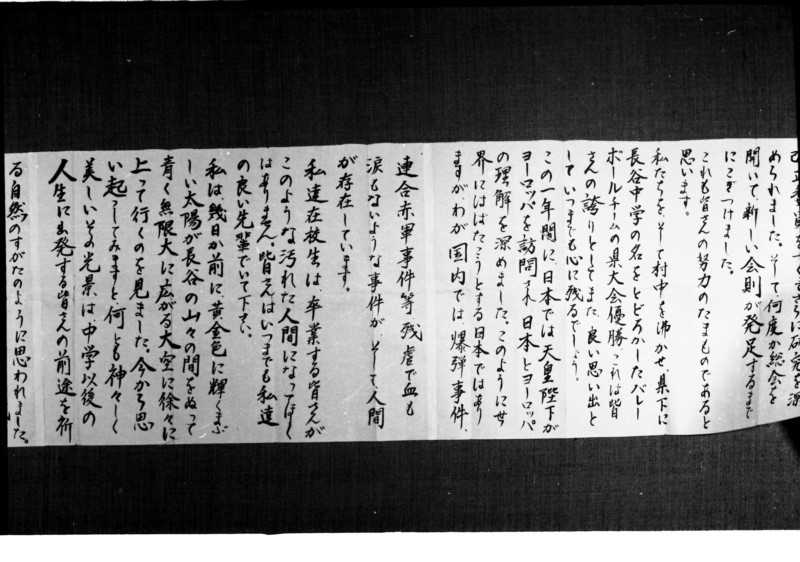 められました。そして、何度か総会を
開いて、新しい会則が発足するまで
にこぎつけました。
これも皆さんの努力のたまものであると
思います。
私たちを、そして村中を沸かせ、県下に
長谷中学の名をとどろかしたバレー
ボールチームの県大会優勝、これは皆
さんの誇りとして、また、良い思い出と
していつまでも心に残るでしょう。
この一年間に、日本では天皇陛下が
ヨーロッパを訪問され、日本とヨーロッパ
の理解を深めました。このように世
界にはばたこうとする日本ではあり
ますが、わが国内では、爆弾事件、
連合赤軍事件等、残虐で血も
涙もないような事件が、そして、人間
が存在しています。
私達在校生は、卒業する皆さんが
このような汚れた人間になってほしく
はありません。皆さんはいつまでも私達
の良い先輩でいて下さい。
私は幾日か前に黄金色に輝くまぶ
しい太陽が長谷の山々の間をぬって
青く無限大に広がる大空に徐々に
上って行くのを見ました。今から思
い起こしてみますと、何とも神々しく
美しいその光景は、中学以後の
人生に出発する皆さんの前途を祈
る自然のすがたのように思われました。